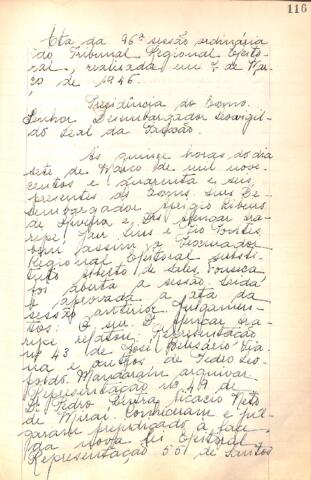 116
Ata da 96ª sessão ordinária
do Tribunal Regional Eleito-
ral, realizada em 7 de Mar-
ço de 1946.
Presidência do Exmo.
Senhor Desembargador
do Leal da Paixão.
As quinze horas do dia
sete de Março de mil nove-
centos e quarenta e seis,
presentes os Exmos. Srs. De-
sembargador Sergio Ribeiro
de Oliveira e, Drs. Alencar Ara-
ripe, e Fontes
bem assim o Procurador
Regional Eleitoral substi-
tuto Alberto de Sales Fonseca
foi aberta a sessão. Lida
e aprovada a ata da
sessão anterior. Julgamen-
tos: O sr. Dr. Alencar Ara-
ripe relatou: Representação
nº 43 de José Belisário Via-
na e outros de Pedro Leo-
poldo. Mandaram arquivar.
Representação nº 49 de
Dr. Pedro Dutra Nicacio Neto
de Miraí. Conheceram e jul-
garam prejudicado a face
da nova lei eleitoral.
Representação 501 de Santos